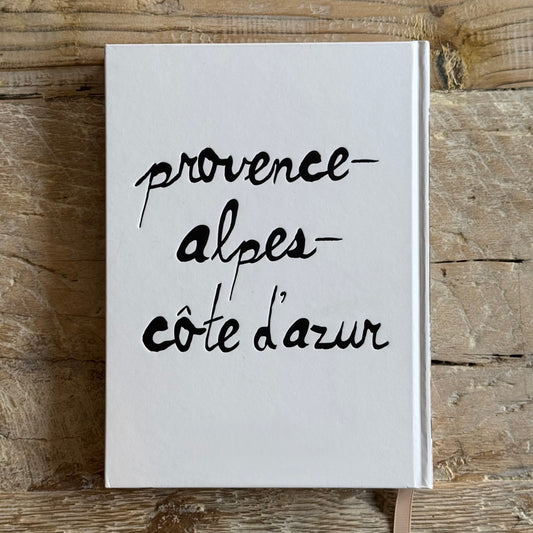 provence-
alpes-
côte d'azur